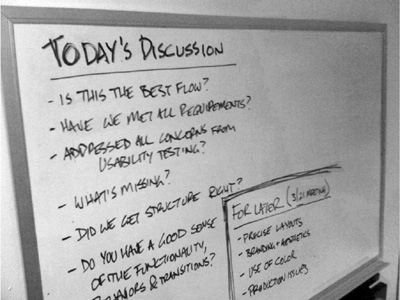 TODAY'S DISCUSSION
- IS THIS THE BEST FLOW?
- HAVE WE MET ALL REQUIREMENTS?
- ADDRESSED ALL CONCERNS FROM
USABILITY TESTING?
- WHAT'S MISSING?
- DID WE GET STRUCTURE RIGHT?
- DO YOU HAVE A GOOD SENSE
OF THE FUNCTIONALITY,
BEHAVIORS & TRANSITIONS?
FOR LATER (3/21 MEETING)
- PRECISE LAYOUTS
- BRANDING + AESTHETICS
- USE OF COLOR
- PRODUCTION ISSUES